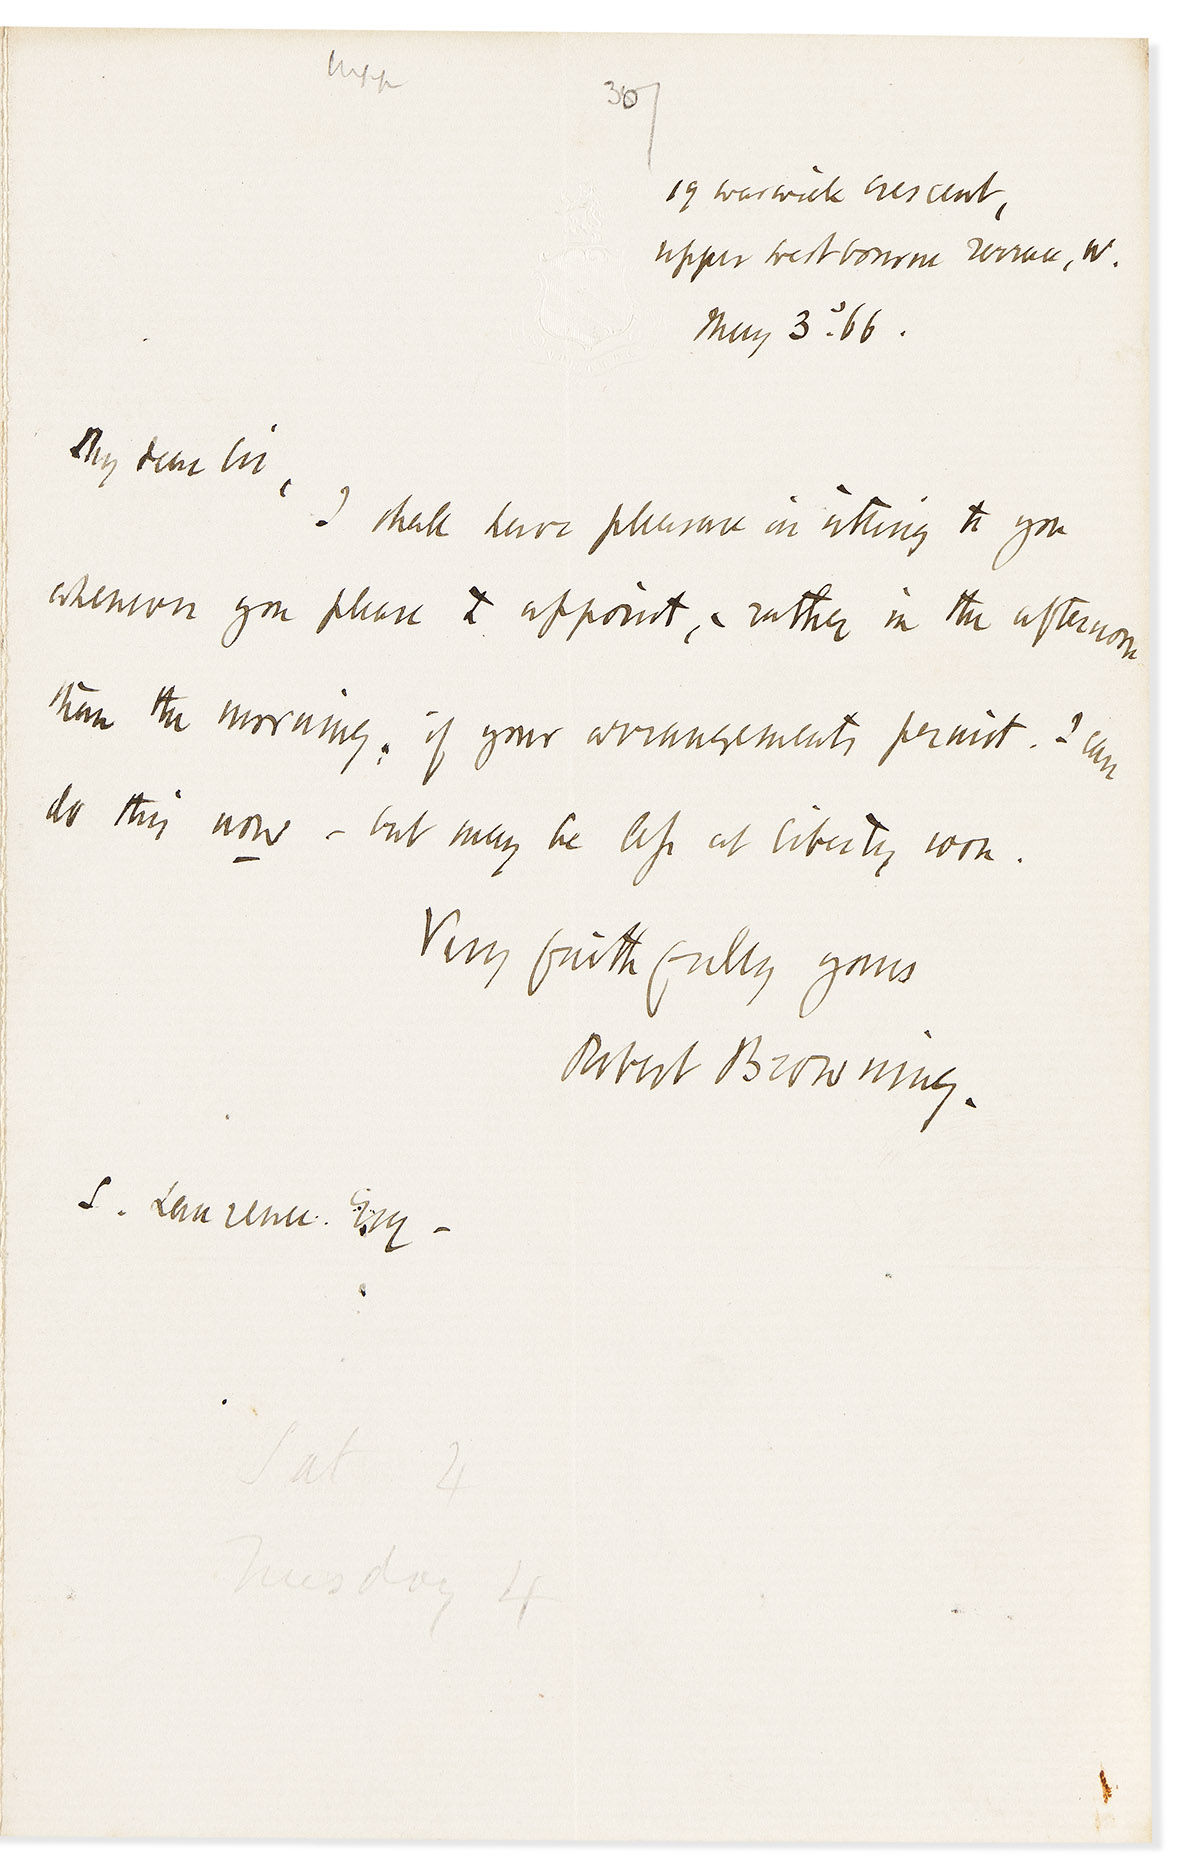 30/
19 Warwick Crescent,
Upper Westbourne Terrace, W.
May 3d. 66.
My dear Sir,
I shall have pleasure in sitting to you
whenever you please to appoint, - rather in the afternoon
than the morning, if your arrangements permit. I can
do this now - but may be less at liberty soon.
Very faithfully yours
Robert Browning.
S. Laurence. Esq -
Sat 4
Tuesday 4